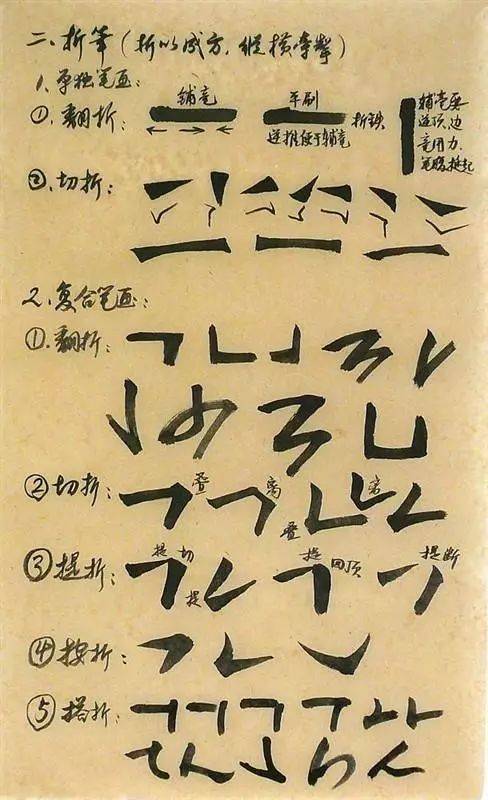 二、折笔(折以成方,纵横牵掣)
1、单独笔画:
①、翻折:
铺毫
平刷
折铁
逆推便于铺毫
铺毫要
逆顶,边
毫用力,
笔腹挺起
②、切折:
2、复合笔画:
①、翻折:
②切折:
叠
离
叠
离
③提折:
提 切
提
提 回顶
提断
④按折:
⑤搭折: